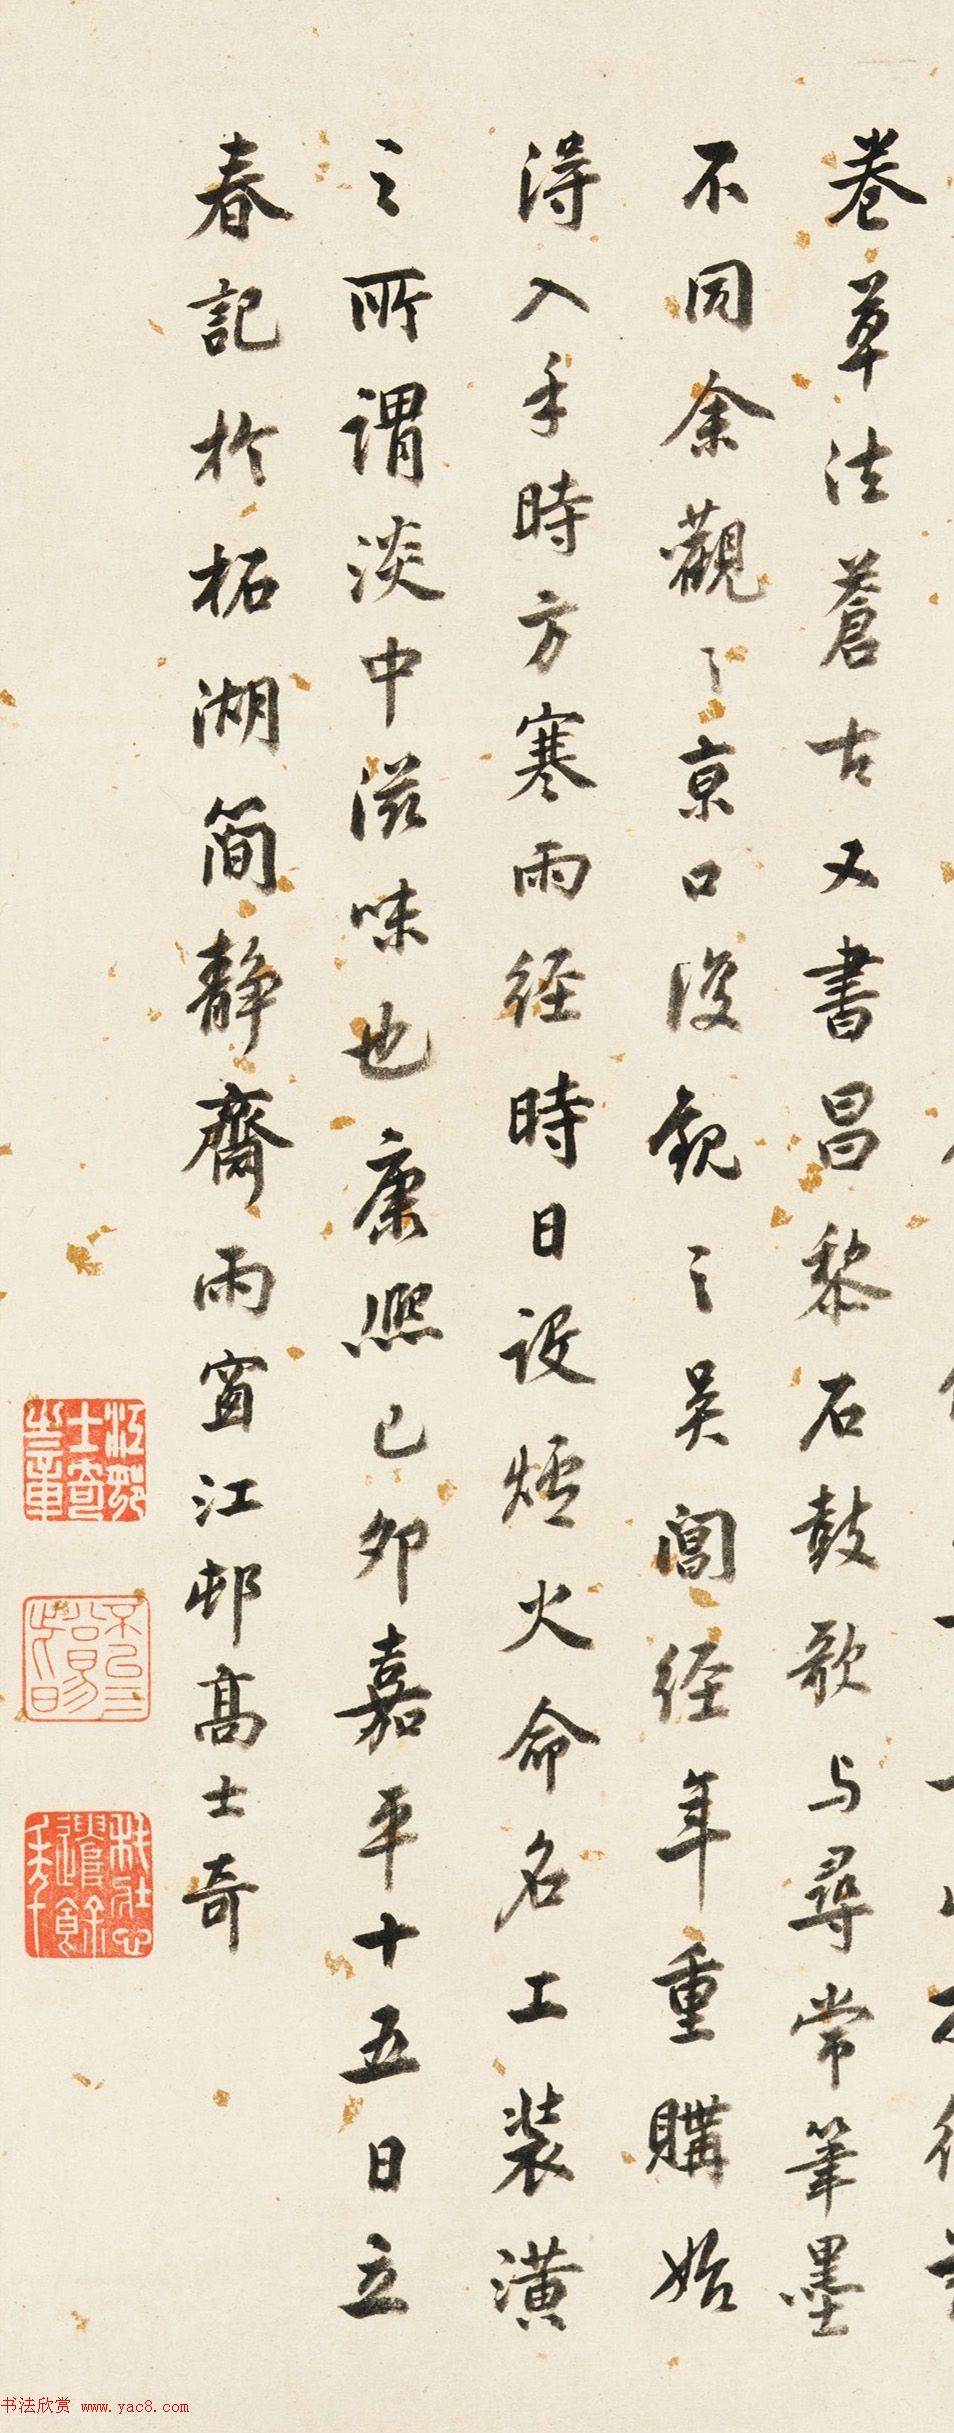 卷草法蒼古又書昌黎石鼓歌与尋常筆墨
不同余觀于京口後觀之吴閶經年重購始
得入手時方寒雨经時日設爐火命名工装潢
之所謂淡中滋味也康熙己卯嘉平十五日立
春記於柘湖簡静齋雨窗江邨高士奇
书法欣赏 www.yac8.com